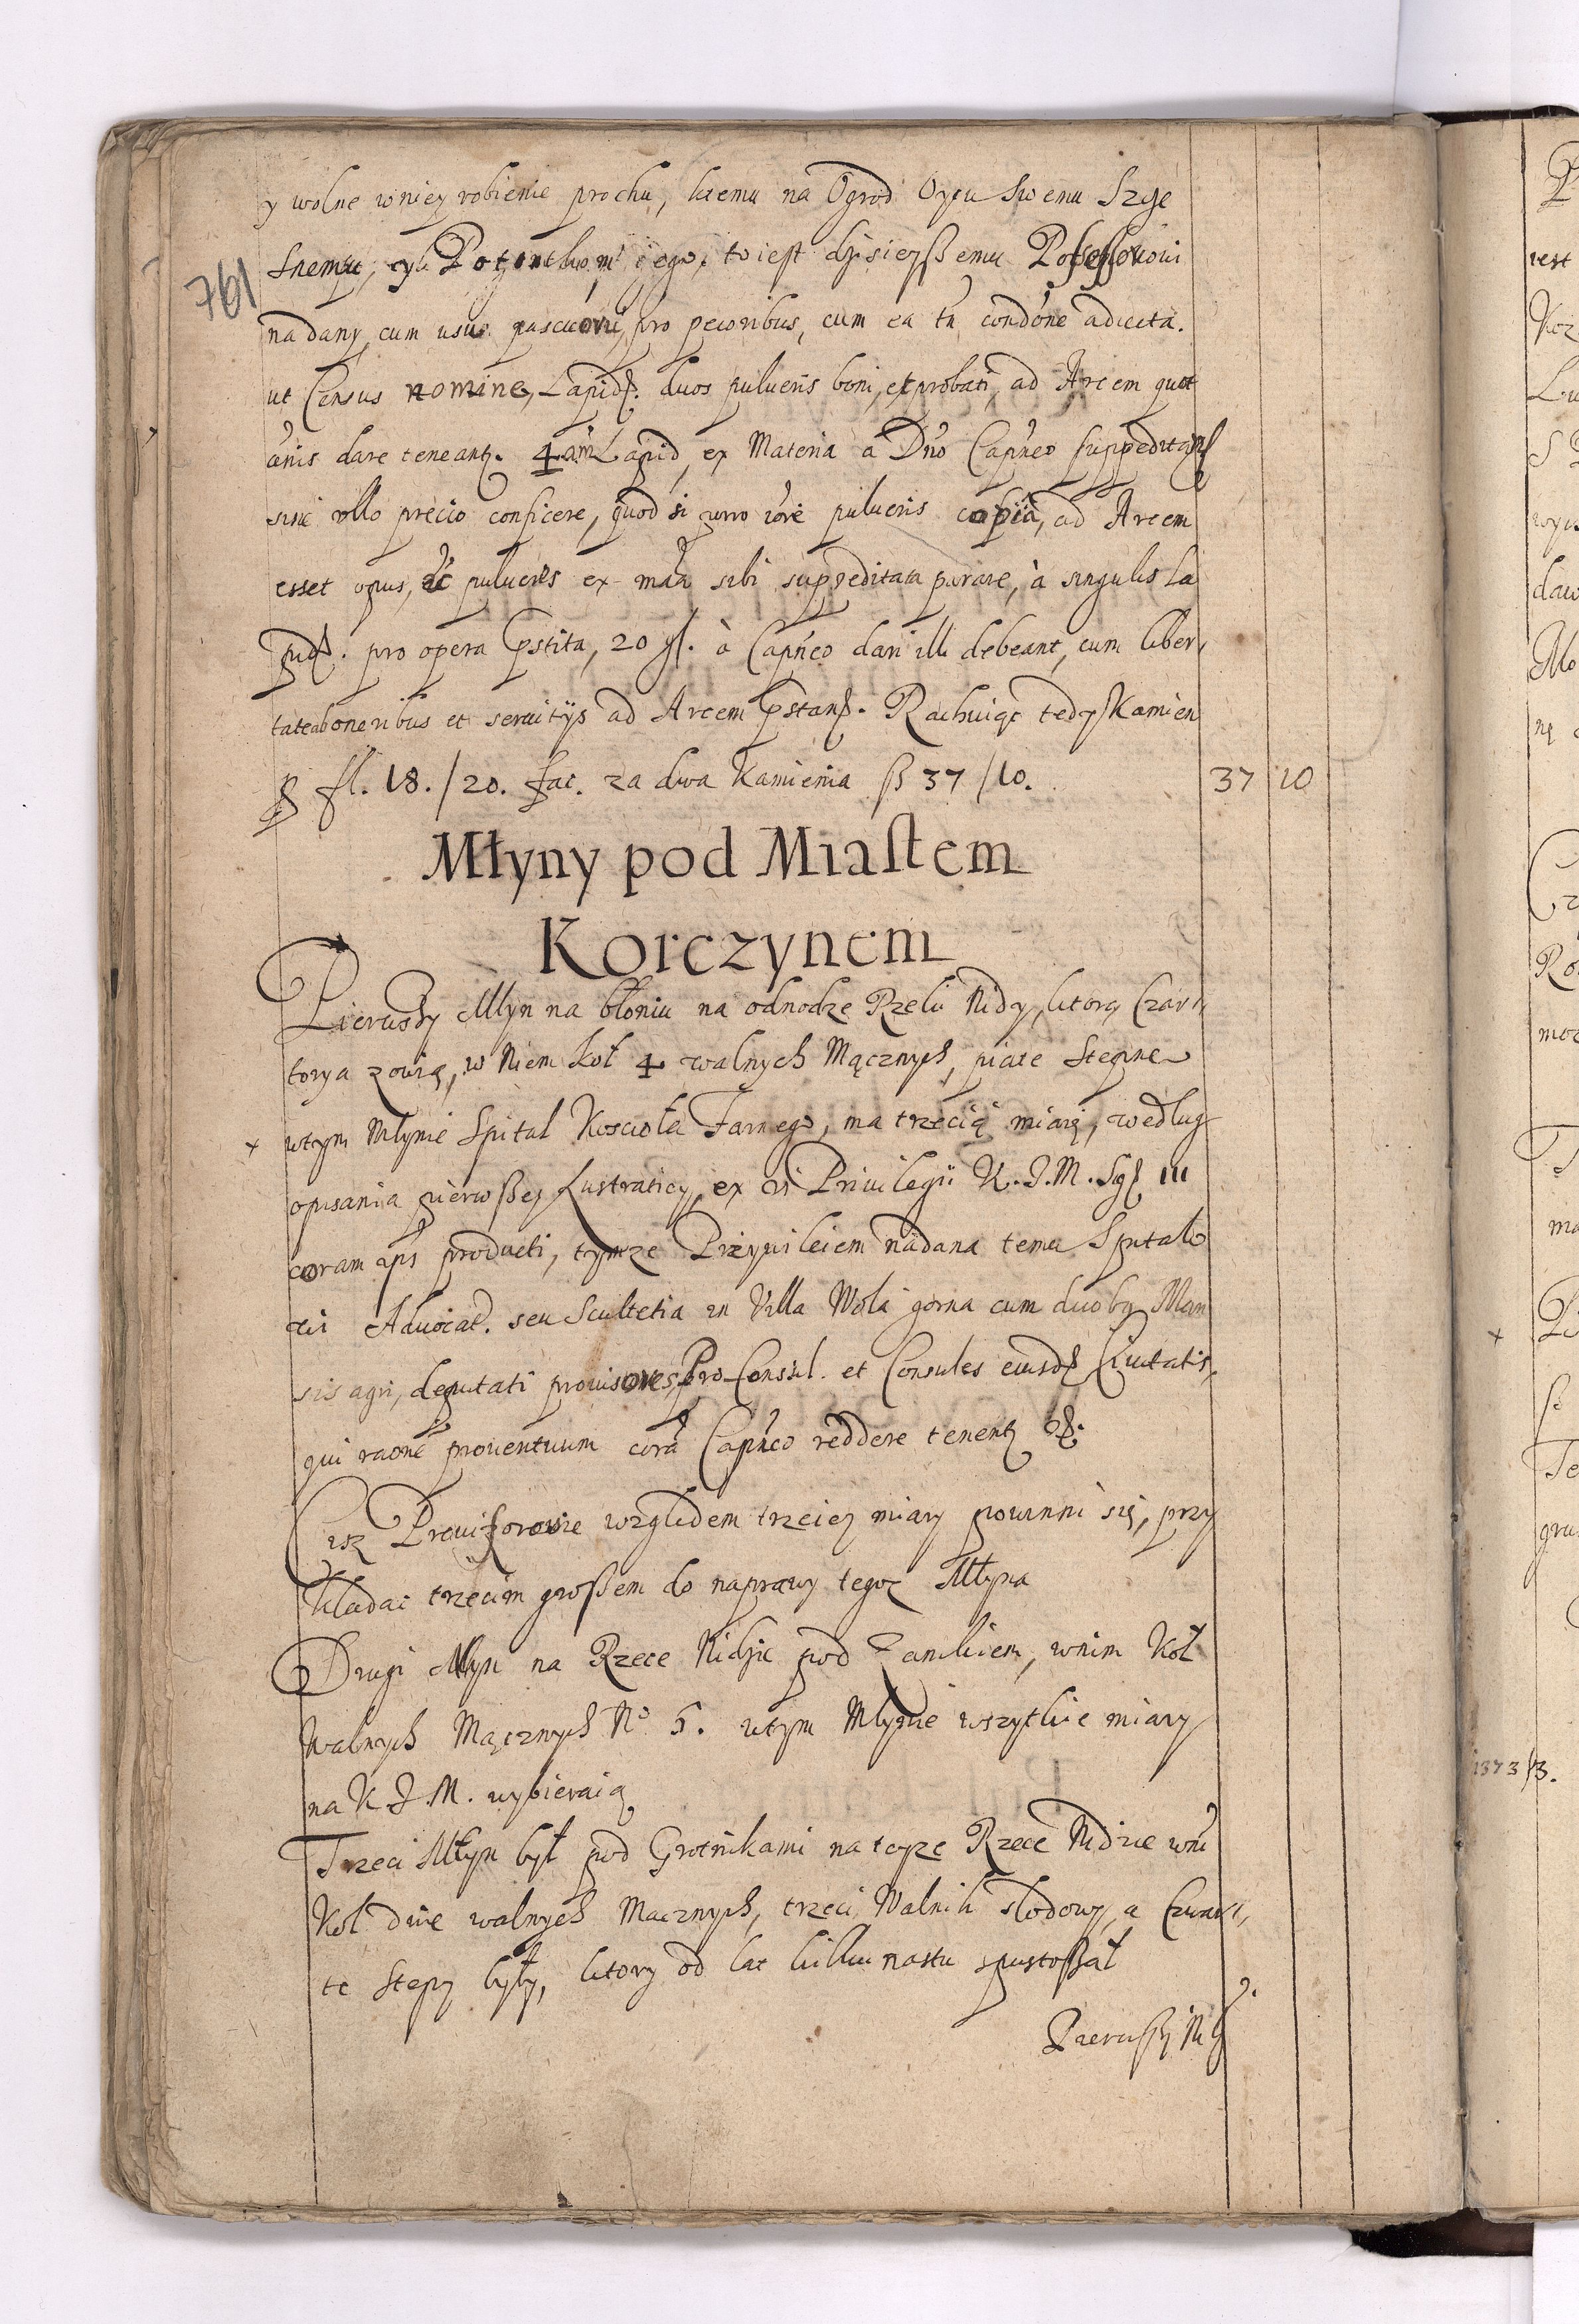 y wolne w niey robienie prochu, ktemu na Ogrod Oycu Swemu Szcze
snemu, ych Potomkom iego, to iest dzisieyßemu Possessorowi
761
nadany cum usu pascuorū, pro pecoribus, cum ea tn̄ condōne adiecta.
ut Census nomine, Lapid. duos pulueris boni, et probati, ad Arcem quot
anis dare teneant. 4 Lapid, ex Materia a Dno Capneo suppeditań
sine ullo precio conficere, quod si maiore pulueris copia, ad Arcem
esset opus, pulueres ex mā sibi suppeditata parare, à singulis La
pid. pro opera pstita, 20 gl. à Capneo dari illi debeant, cum liber,
tate ab oneribus et seruitijs ad Arcem pstand. Rachuiąc tedy Kamien
p fl. 18./20. fac. za dwa Kamienia fl 37/10.
37 10
Młyny pod Miastem
Korczynem
Pierwszy Młyn na błoniu na odnodze Rzeki Nidy, ktorą Czar,
torya zowią, w Niem koł 4 walnych Mącznych, piąte Stępne
+ wtym Młynie Spital Koscioła Farnego, ma trzecią miarę, według
opisania pierwßey Lustraticy, ex vi Priuilegii K.J.M. Sig. III
coram nps producti, tymze Przywileiem nadana temu Spitalo
wi Aduocat. seu Scultetia in Villa Wola gorna cum duobq Man
sis agri, deputati prouisores, Pro-Consul. et Consules eiusd. Ciuitatis,
qui raonē prouentuum corā Capneo reddere tenent &.
Ciz Prouizorowie względem trzeciey miary powinni się, przy
kładac trzecim großem do naprawy tegoz Młyna
Drugi Młyn na Rzece Nidzie pod Zamkiem, w nim Koł
Walnych Mącznych No 5. wtym Młynie wszytkie miary
na K J. M. wybieraią
Trzeci Młyn był pod Grotnikami na teyze Rzece Nidzie wni
Koł dwie walnych Mącznych, trzeci Walnik słodowy, a Czwar,
te Stępy były, ktory od lat kilkunastu spustoßał
Pierwßy Mł